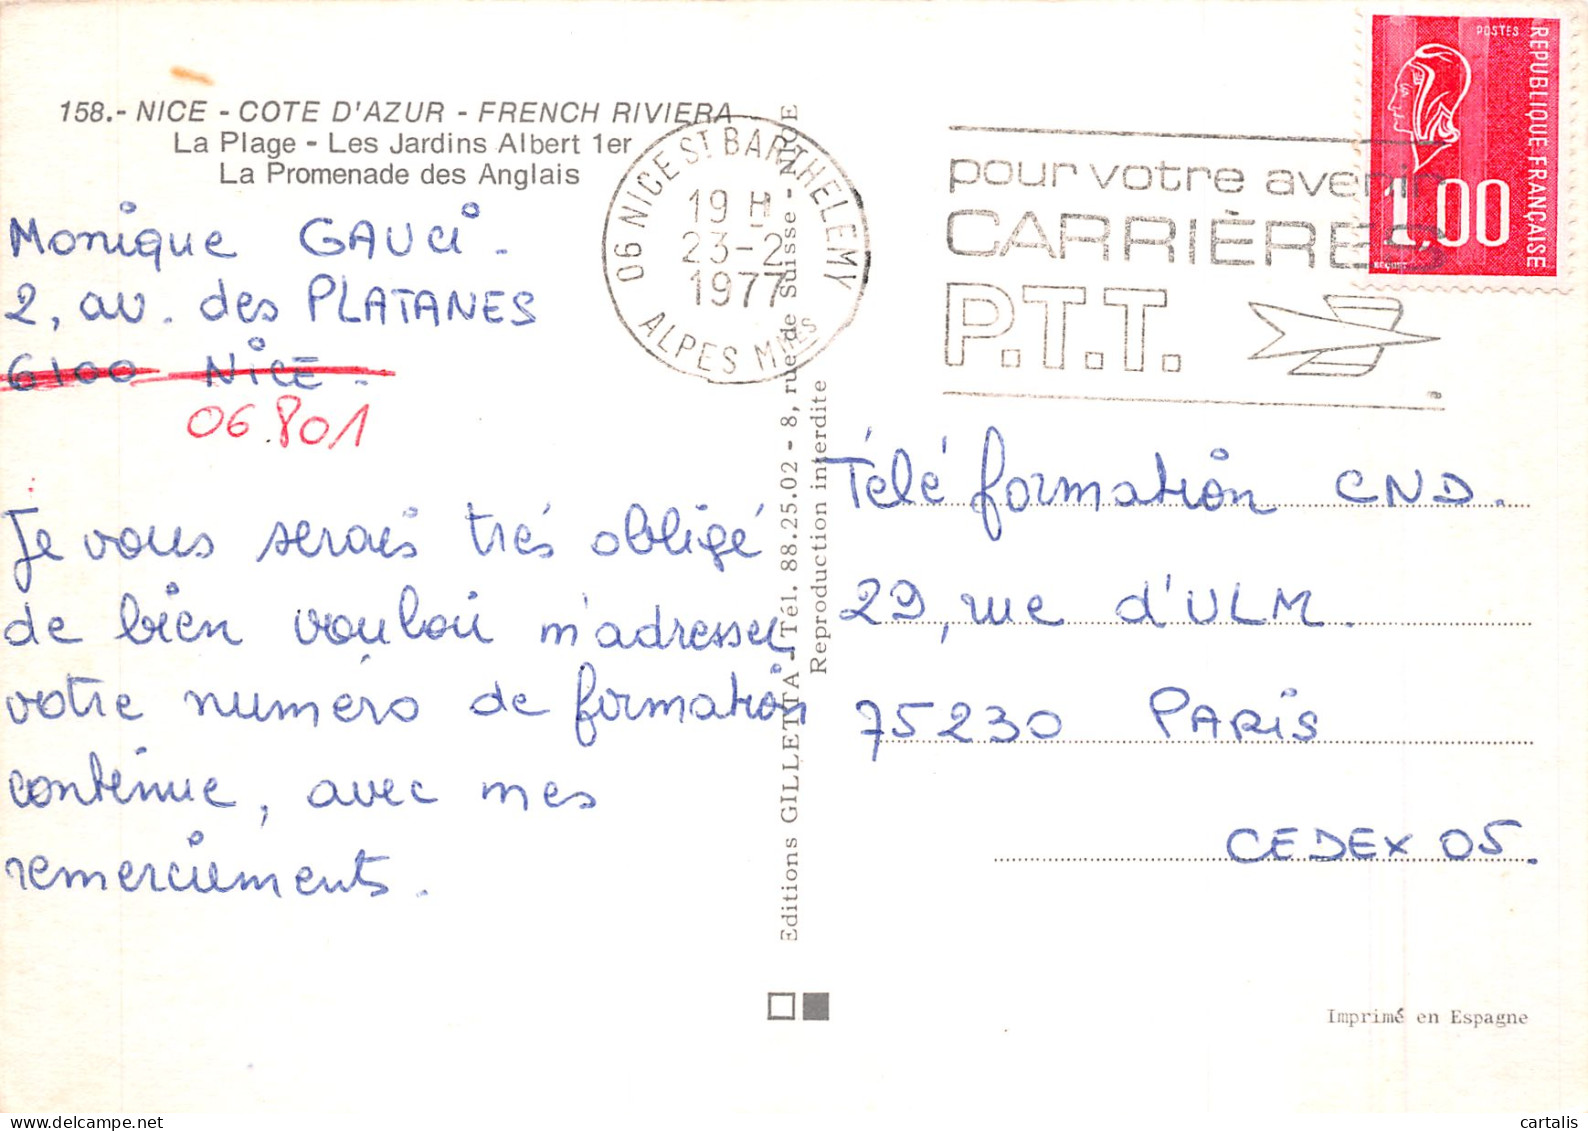 158.- NICE - COTE D'AZUR - FRENCH RIVIERA
La Plage - Les Jardins Albert 1er
La Promenade des Anglais
Monique GAUCi.
2, av. des PLATANES
6100 NiCE.
06.801
Je vous serais très obligé
de bien vouloir m'adresser
votre numéro de formation
contenue, avec mes
remerciements.
06 NICE ST BARTHELEMY
19 H
23-2
1977
ALPES MMES
pour votre avenir
CARRIÈRES
P.T.T.
POSTES
REPUBLIQUE FRANÇAISE
1,00
Editions GILLETTA - Tél. 88.25.02 - 8, rue de Suisse - NICE
Reproduction interdite
Télé formation CND.
29, rue d'ULM.
75230 PARiS
CEDEX 05.
Imprimé en Espagne
cartalis
delcampe.net